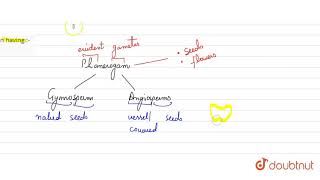 n having :-
evident gametes
Phanerogam
• seeds
• flowers
Gymnosperm Angiosperms
naked seeds vessel/ seeds
covered
doubtnut